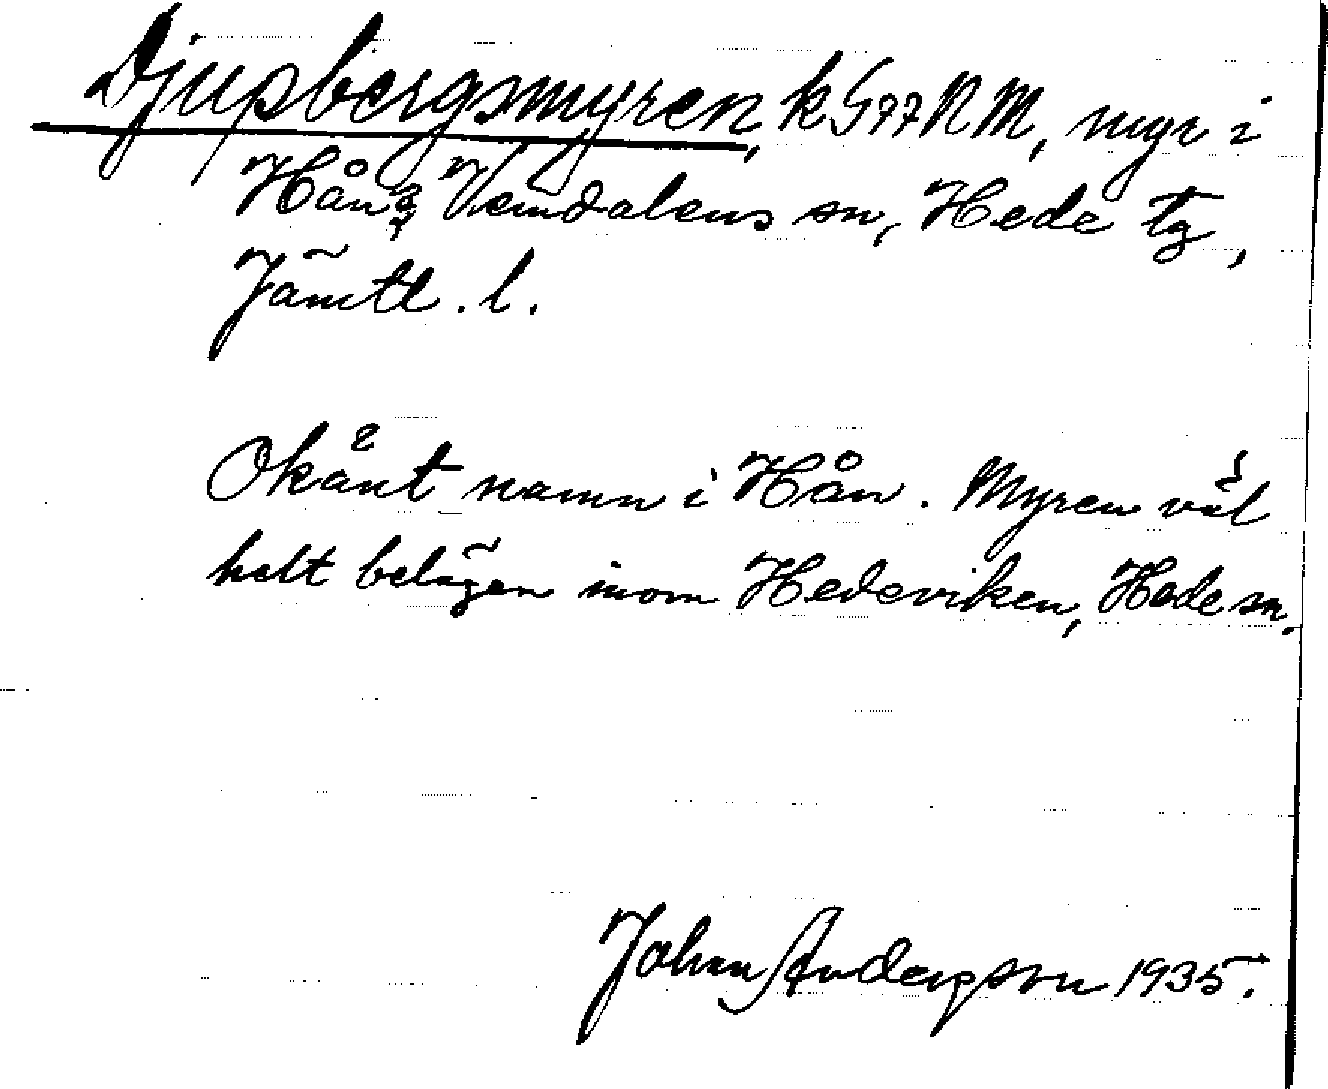 Djupsbergsmyren, k G77NM, myr i
Hån, Vemdalens sn, Hede tg,
Jämtl. l.
Okänt namn i Hån. Myren väl
helt belägen inom Hedeviken, Hede sn.
Johan Anderson 1935.